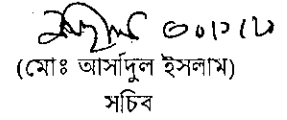 (মোঃ আর্সাদুল ইসলাম)
সচিব